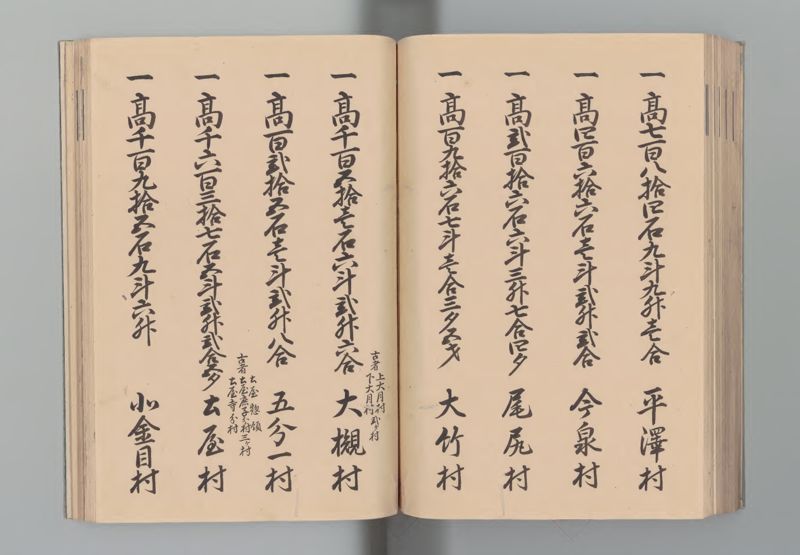 一高七百八拾四石九斗九升壱合 平澤村
一高四百六拾六石壱斗弐升弐合 今泉村
一高弐百拾六石六斗三升七合四夕 尾尻村
一高百九拾六石七斗壱合三夕五才 大竹村
古者 上大月村
下大月村 弐ヶ村
一高千百五拾壱石六斗弐升六合 大槻村
一高百弐拾五石壱斗弐升八合 五分一村
古者 土屋惣領
土屋庶子分村 三ヶ村
土屋寺分村
一高千六百三拾七石五斗弐升弐合五夕 土屋村
一高千百九拾五石九斗六升 北金目村